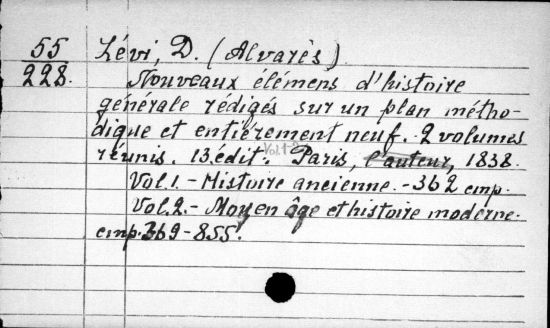 55 Lévi, D. (Alvarès)
228. Nouveaux élémens d'histoire
générale rédigés sur un plan métho-
dique et entiérement neuf. 2 volumes
réunis. 13.édit. Paris, l'auteur, 1838.
Vol. 1. - Histoire ancienne. - 362 стр.
Vol. 2. - Moyen âge et histoire moderne.
стр. 369-855.